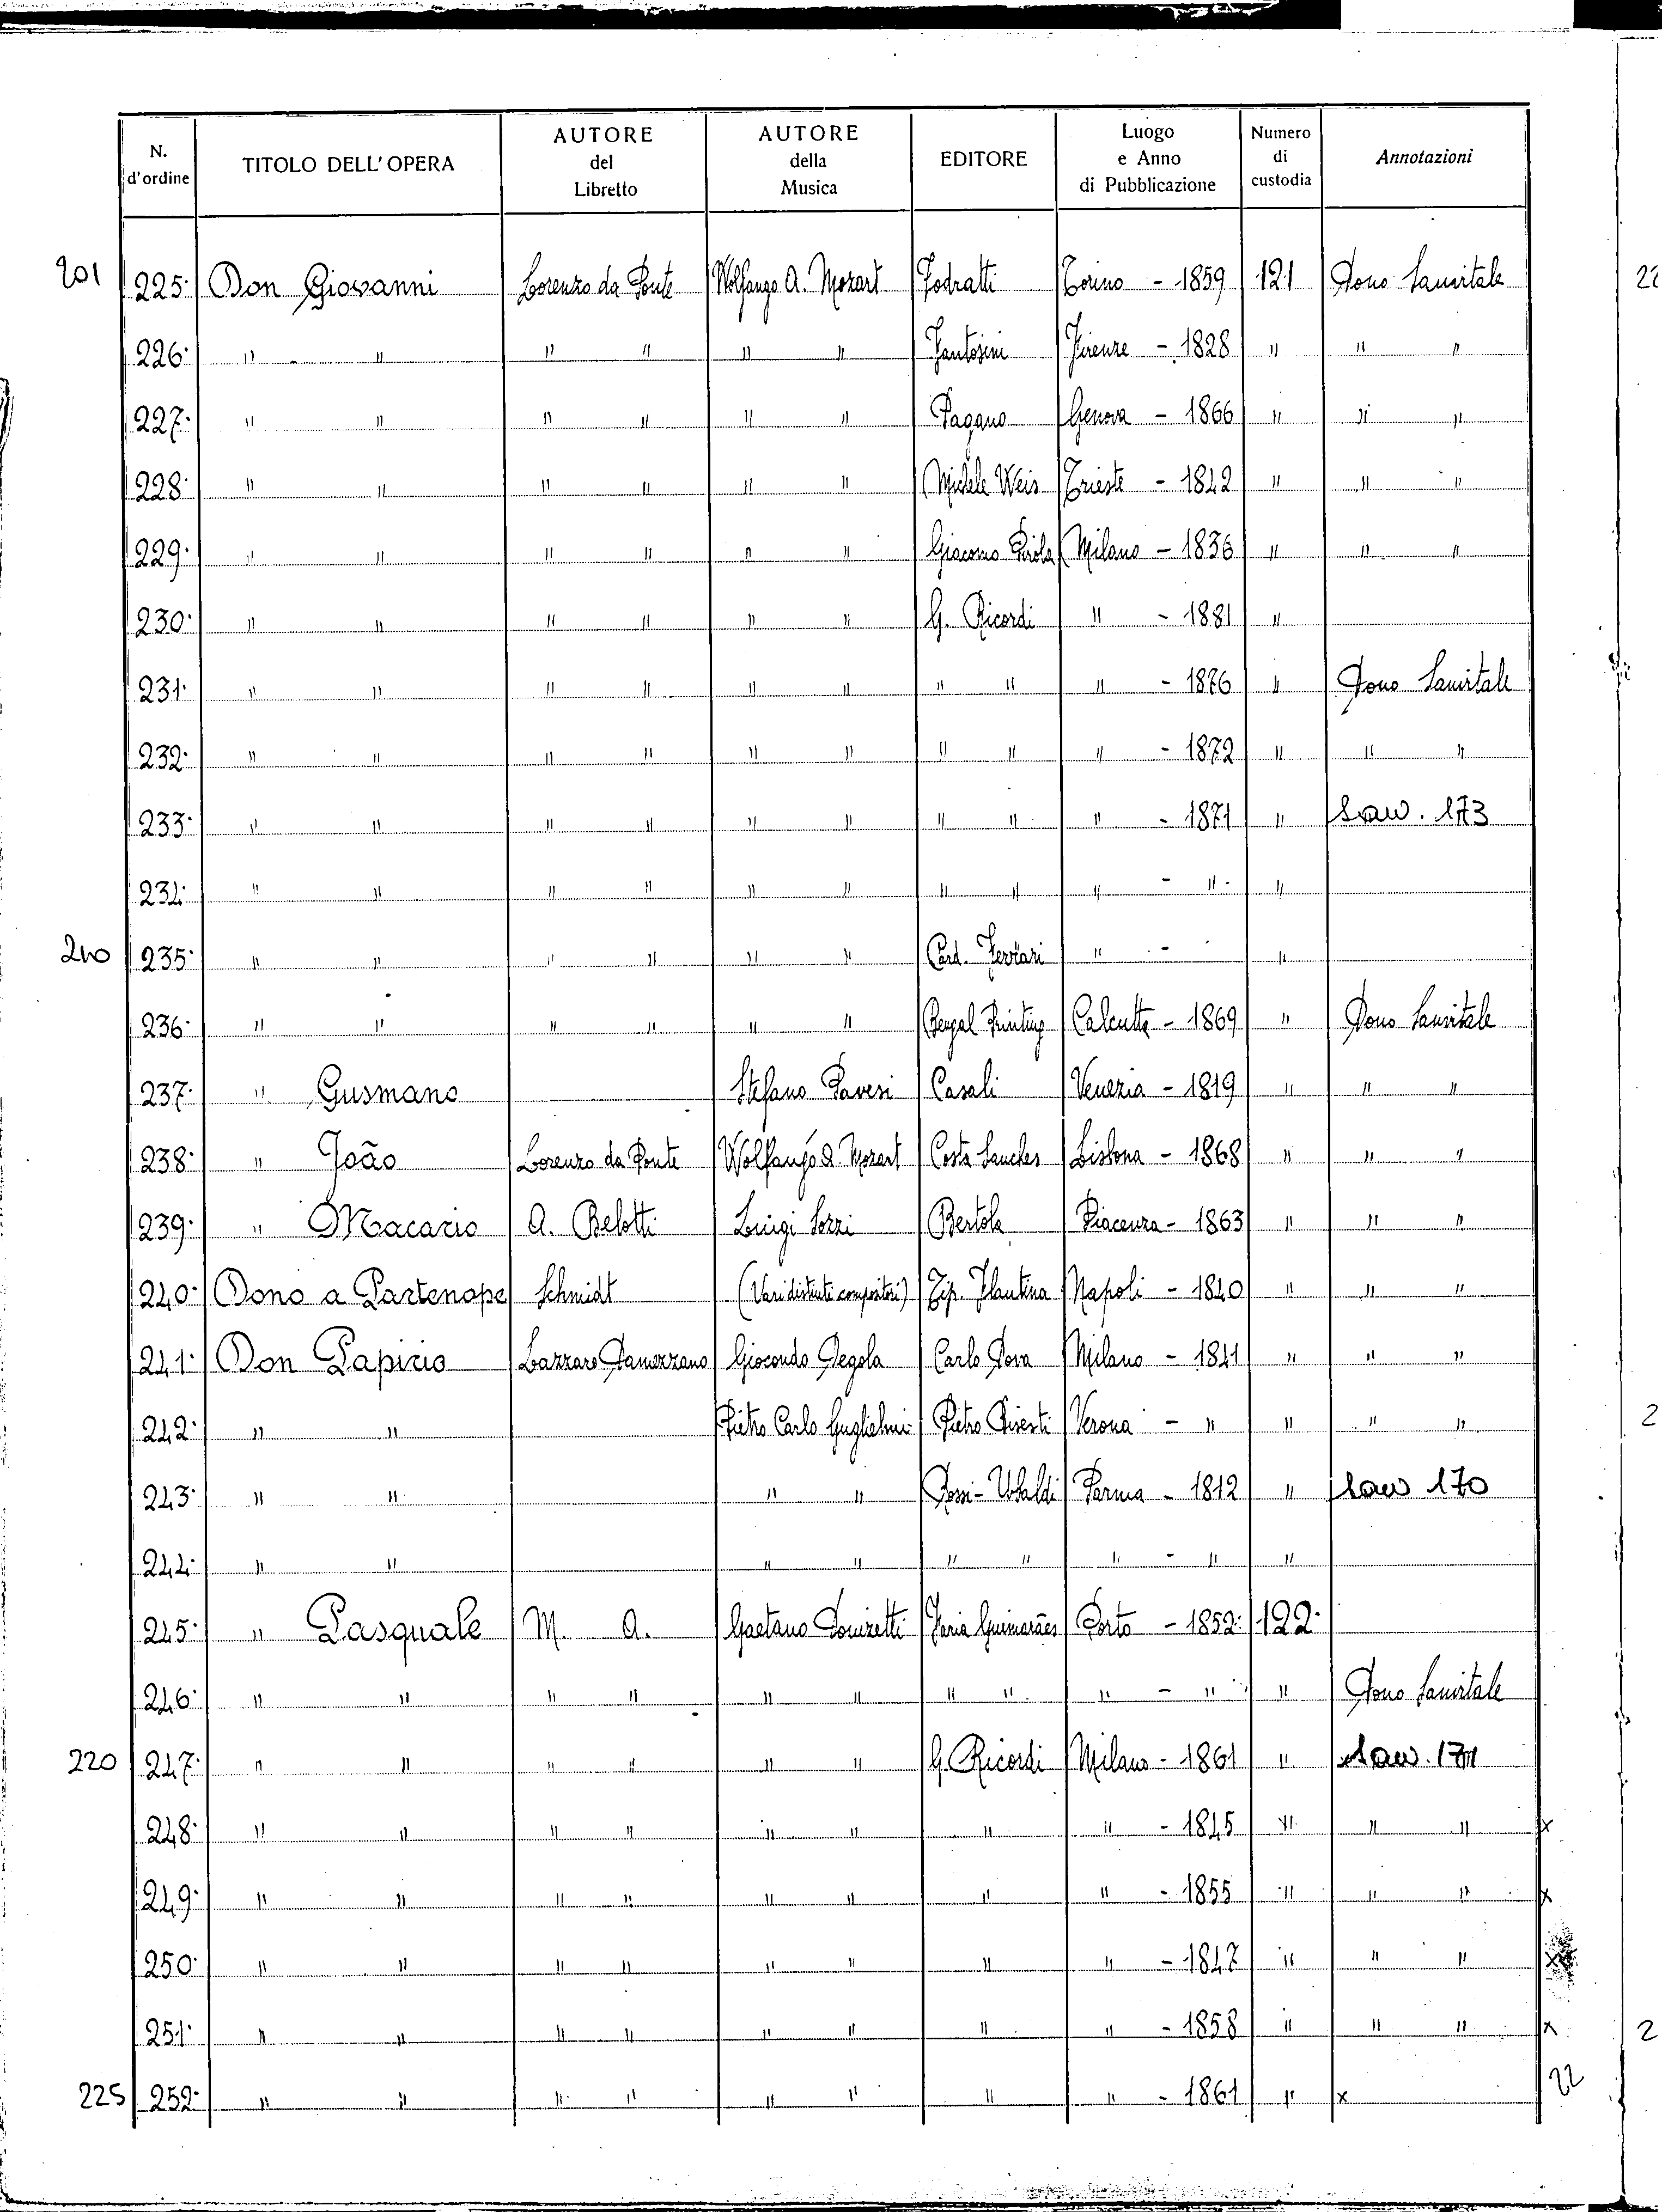 N. d'ordine TITOLO DELL' OPERA AUTORE del Libretto AUTORE della Musica EDITORE Luogo e Anno di Pubblicazione Numero di custodia Annotazioni
201 225· Don Giovanni Lorenzo da Ponte Wolfango A. Mozart Fodratti Torino - 1859 121 Dono Sanvitale
226· " " " " " " Fantosini Firenze - 1828 " " "
227· " " " " " " Pagano Genova - 1866 " " "
228· " " " " " " Michele Weis Trieste - 1842 " " "
229· " " " " " " Giacomo Pirola Milano - 1836 " " "
230· " " " " " " G. Ricordi " - 1881 "
231· " " " " " " " " " - 1876 " Dono Sanvitale
232· " " " " " " " " " - 1872 " " "
233· " " " " " " " " " - 1871 " Saw. 173
234· " " " " " " " " " - " "
210 235· " " " " " " Ferrari " - "
236· " " " " " " Printing Calcutta - 1869 " Dono Sanvitale
237· " Gusmano Stefano Pavesi Casali Venezia - 1819 " " "
238· " João Lorenzo da Ponte Wolfango A. Mozart Costa Sanches Lisbona - 1868 " " "
239· " Macario A. Belotti Luigi Sozzi Bertola Piacenza - 1863 " " "
240· Dono a Partenope Schmidt (Vari distinti compositori) Tip. Flautina Napoli - 1840 " " "
241· Don Papirio Lazzaro Damezzano Giocondo Degola Carlo Dova Milano - 1841 " " "
242· " " Pietro Carlo Guglielmi Pietro Bisesti Verona - " " " "
243· " " " " Rossi-Ubaldi Parma - 1812 " Saw 170
244· " " " " " " " - " "
245· " Pasquale M. A. Gaetano Donizetti Faria Guimarães Porto - 1852· 122·
246· " " " " " " " " " - " " Dono Sanvitale
220 247· " " " " " " G. Ricordi Milano - 1861 " Saw. 171
248· " " " " " " " " - 1845 " " " x
249· " " " " " " " " - 1855 " " " x
250· " " " " " " " " - 1847 " " " x
251· " " " " " " " " - 1858 " " " x
225 252· " " " " " " " " - 1861 " x 22